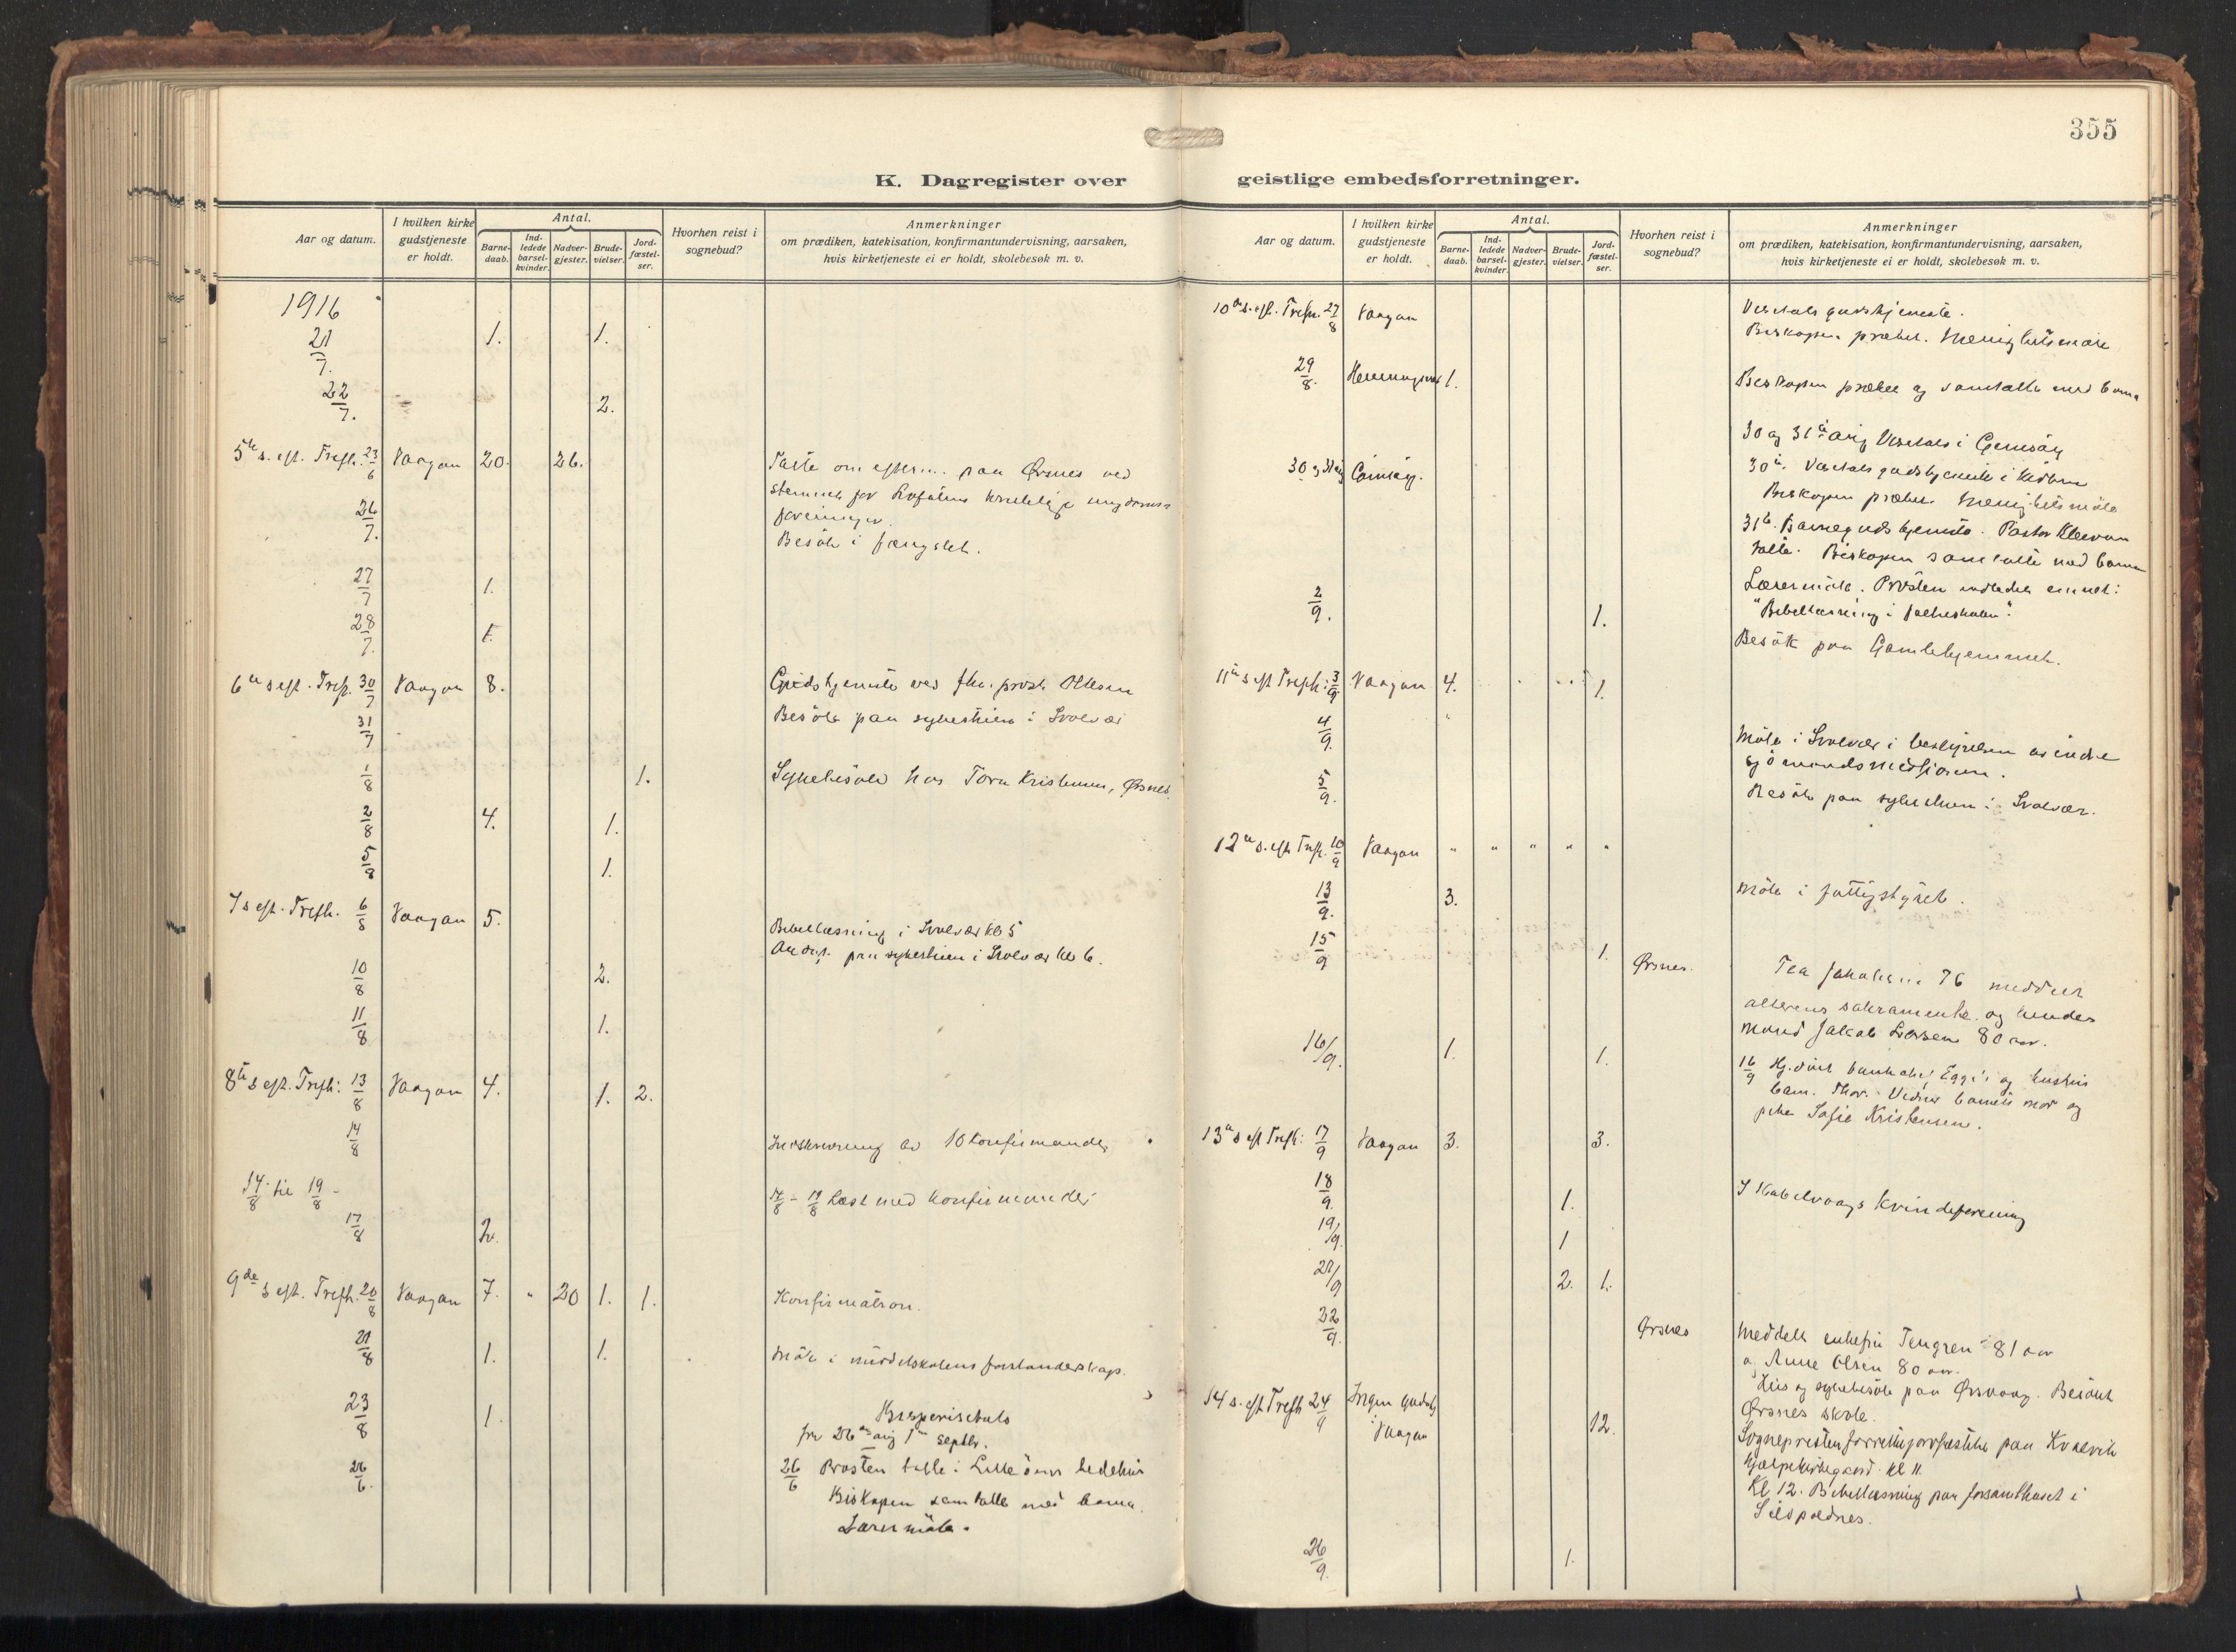 355
K. Dagregister over geistlige embedsforretninger.
Aar og datum.
I hvilken kirke gudstjeneste er holdt.
Antal.
Barne-daab.
Ind-ledede barsel-kvinder.
Nadver-gjester.
Brude-vielser.
Jord-fæstel-ser.
Hvorhen reist i sognebud?
Anmerkninger
om prædiken, katekisation, konfirmantundervisning, aarsaken,
hvis kirketjeneste ei er holdt, skolebesøk m. v.
1916
21/7. 1. 1.
22/7. 2.
5te s. eft. Trefh. 23/6 Vaagan 20. 26. Talte om efterm. paa Ørsnes ved
stevnet for Lofotens kristelige ungdoms
foreninger.
26/7. Besök i fængslet.
27/7 1.
28/7. 1.
6te s eft. Tref. 30/7 Vaagan 8. Gudstjeneste ved fhv. prost
31/7 Besök paa sykestuen i Svolvær
1/8 1. Sykebesök hos Tora Kristensen, Ørsnes.
2/8 4. 1.
5/8 1.
7 s eft. Trefh. 6/8 Vaagan 5. Bibellæsning i Svolvær kl 5
Andagt paa sykestuen i Svolvær kl 6.
10/8 2.
11/8 1.
8te s eft. Trefh: 13/8 Vaagan 4. 1. 2.
14/8 Indskrivning av 10 konfirmander
14/8 til 19/8 - 14/8 - 19/8 Læst med konfirmander
17/8 2.
9de s eft. Trefh. 20/8 Vaagan 7. " 20 1. 1. Konfirmation.
21/8 1. 1. Möte i middelskolens forstanderskap.
23/8 1. Bispevisitats
fra 26 aug 1 septbr.
26/6. 26/6 Prosten talte i bedehus
Biskopen samtalte med barna.
Lærermöte.
Aar og datum.
I hvilken kirke gudstjeneste er holdt.
Antal.
Barne-daab.
Ind-ledede barsel-kvinder.
Nadver-gjester.
Brude-vielser.
Jord-fæstel-ser.
Hvorhen reist i sognebud?
Anmerkninger
om prædiken, katekisation, konfirmantundervisning, aarsaken,
hvis kirketjeneste ei er holdt, skolebesøk m. v.
10de s. eft. Trefh. 27/8 Vaagan Visitats gudstjeneste.
Biskopen præket. Menighetsmöte
29/8. Henningsvær 1. Biskopen præket og samtalte med barna
30 og 31 aug Gimsöy. 30 og 31te aug Visitats i Gimsöy
30te. Visitats gudstjeneste i kirken
Biskopen præket. Menighetsmöte
31te. Barnegudstjeneste. Pastor Kleven
talte. Biskopen samtalte med barna
Lærermöte. Prosten indledet emnet:
2/9. 1. "Bibellæsning i folkeskolen".
Besök paa Gamlehjemmet.
11te s eft Trefh: 3/9 Vaagan 4. 1.
4/9. Möte i Svolvær i bestyrelsen av indre
sjömandsmissionen.
5/9. Besök paa sykestuen i Svolvær.
12te s. eft Trefh. 10/9 Vaagan " " " " "
13/9. 3. Möte i fattigstyret.
15/9 1. Ørsnes. Tea Jakobsen 76 meddelt
alterens sakramente og hendes
mand Jakob Larsen 80 aar.
16/9. 1. 1. 16/9 Hj.döpt Egges og hustrus
barn. Thor. Vidner barnets mor og
pike Sofie Kristensen.
13de s eft Trefh: 17/9 Vaagan 3. 3.
18/9. 1. I Kabelvaags Kvindeforening
19/9. 1
21/9 2. 1.
22/9. Ørsnes Meddelt enkefru Tengren 81 aar
og Anne Olsen 80 aar.
Hus og sykebesök paa Ørsvaag. Besökt
Ørsnes skole.
14 s. eft Trefh 24/9 Ingen gudstj i Vaagan 12. Sognepresten forrettet jordfæstelse paa Kvalvik
hjælpekirkegaard kl 11.
Kl 12. Bibellæsning paa forsamlhuset i
Sildpoldnes.
26/9. 1.